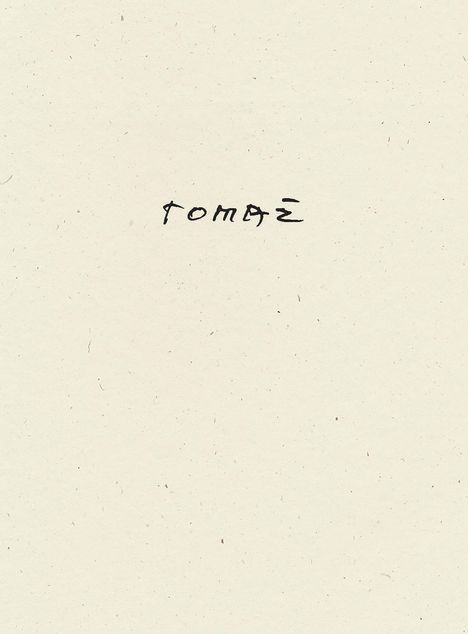 TOMAŽ